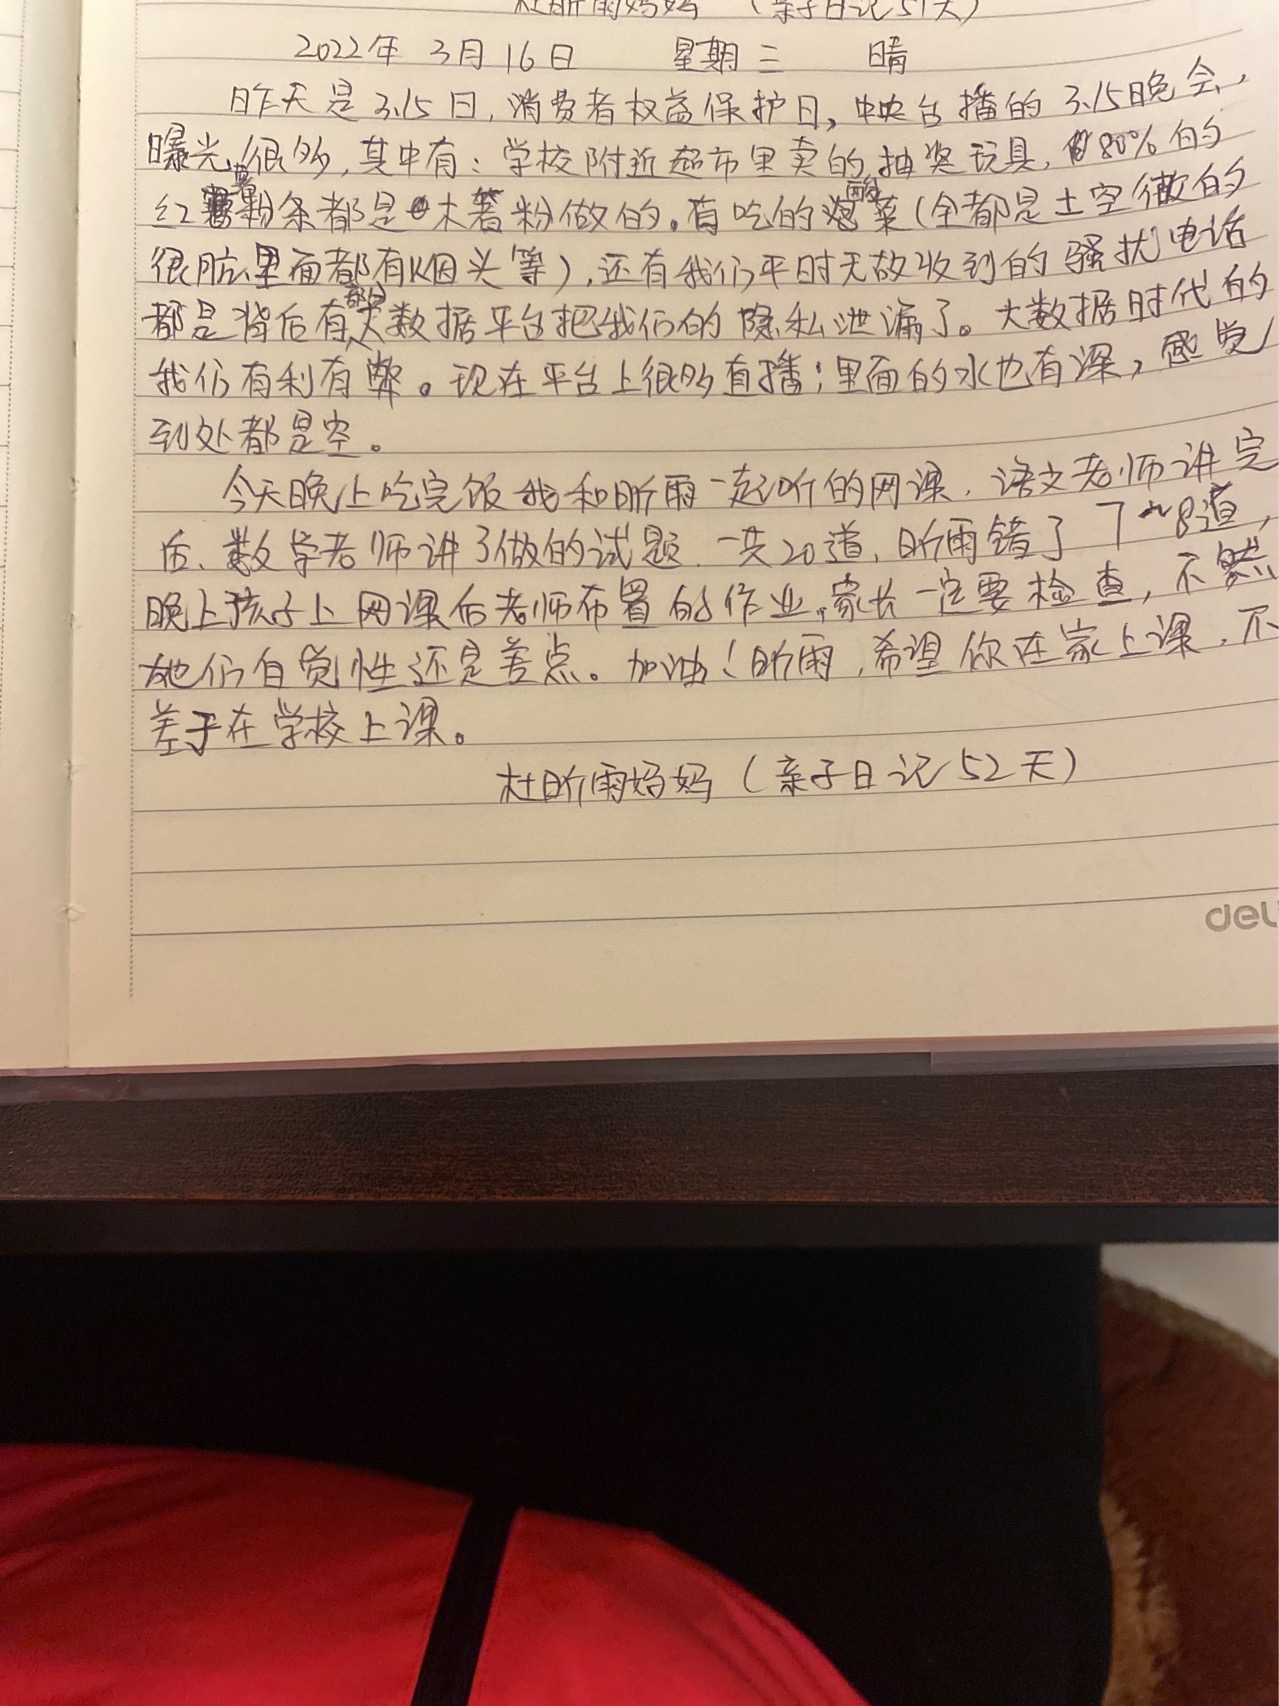 杜昕雨妈妈 (亲子日记51天)
2022年 3月16日 星期三 晴
昨天是3.15日,消费者权益保护日,中央台播的3.15晚会,
曝光很多,其中有:学校附近超市里卖的抽奖玩具,80%的
红薯粉条都是木薯粉做的。有吃的酸菜(全都是土空做的
很脏里面都有烟头等),还有我们平时无故收到的骚扰电话
都是背后有部份大数据平台把我们的隐私泄漏了。大数据时代的
我们有利有弊。现在平台上很多直播;里面的水也有深,感觉
到处都是空。
今天晚上吃完饭我和昕雨一起听的网课,语文老师讲完
后、数学老师讲了做的试题.一共20道,昕雨错了7~8道,
晚上孩子上网课后老师布置的作业,家长一定要检查,不然
她们自觉性还是差点。加油!昕雨,希望你在家上课,不
差于在学校上课。
杜昕雨妈妈(亲子日记52天)
del